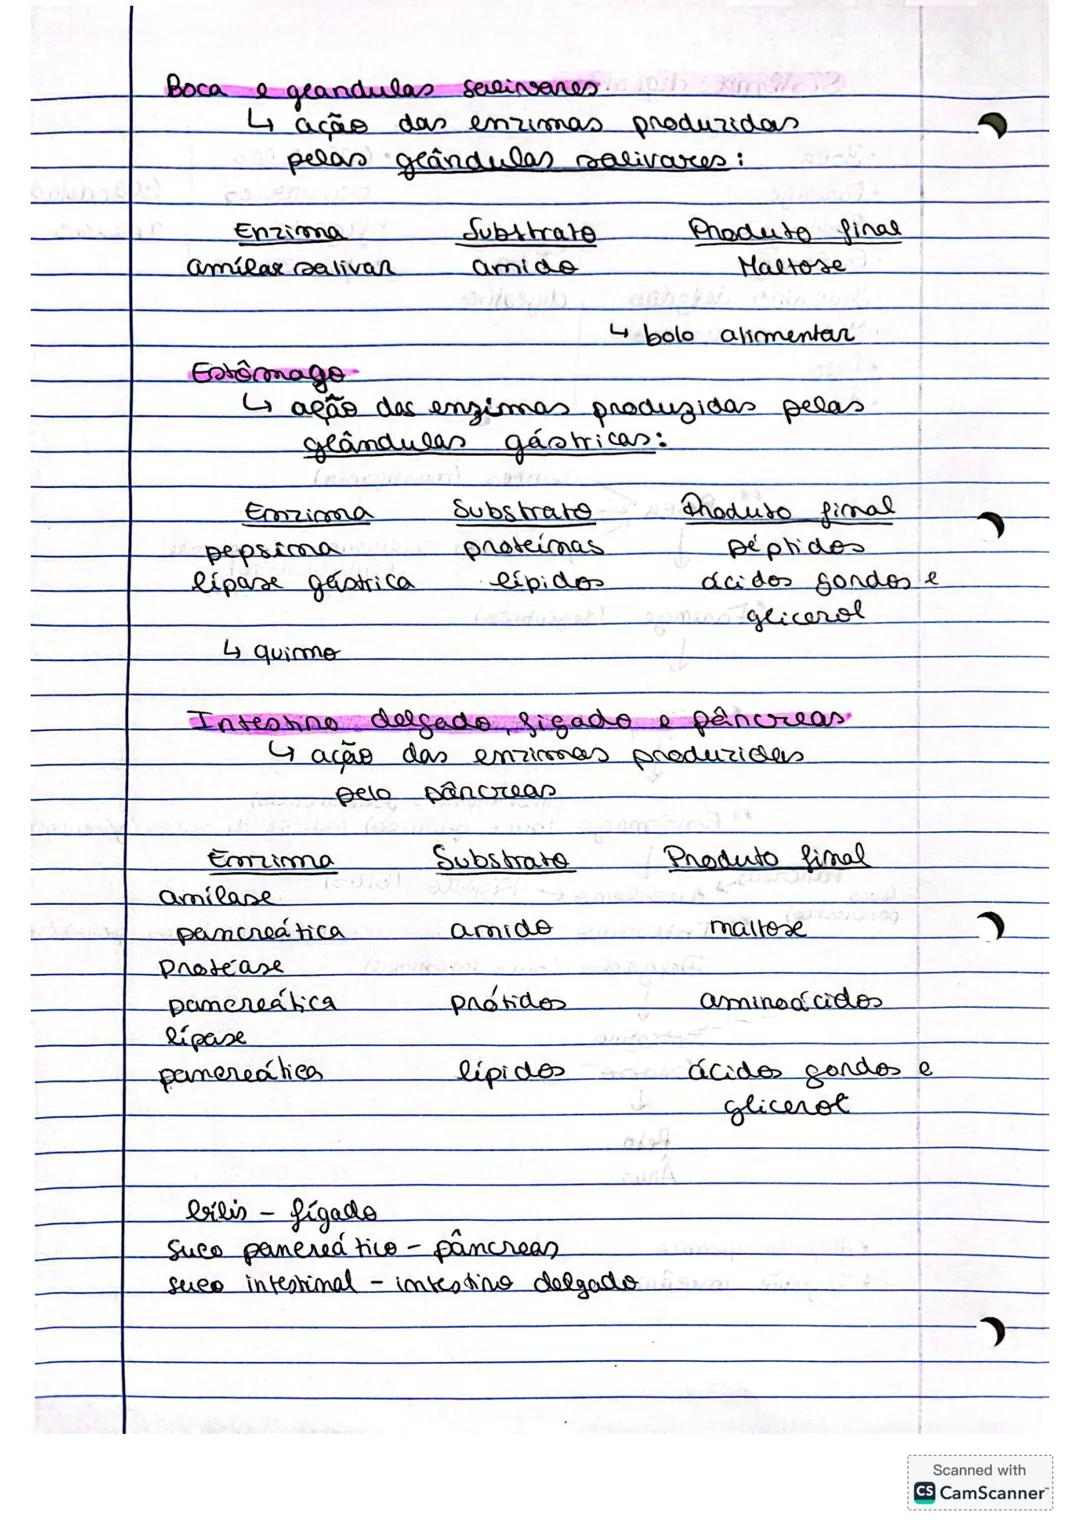 Boca e glandulas salivares
↳ ação das enzimas produzidas
pelas glândulas salivares:
Enzima Substrato Produto final
amílase salivar amido Maltose
↳ bolo alimentar
Estômago
↳ ação das enzimas produzidas pelas
glândulas gástricas:
Enzima Substrato Produto final
pepsina proteínas péptidos
lípase gástrica lípidos ácidos gordos e
glicerol
↳ quimo
Intestino delgado, fígado e pâncreas
↳ ação das enzimas produzidas
pelo pâncreas
Enzima Substrato Produto final
amílase
pancreática amido maltose
Protéase
pancreática prótidos aminoácidos
lípase
pancreática lípidos ácidos gordos e
glicerol
bílis - fígado
suco pancreático - pâncreas
suco intestinal - intestino delgado
Scanned with
CS CamScanner